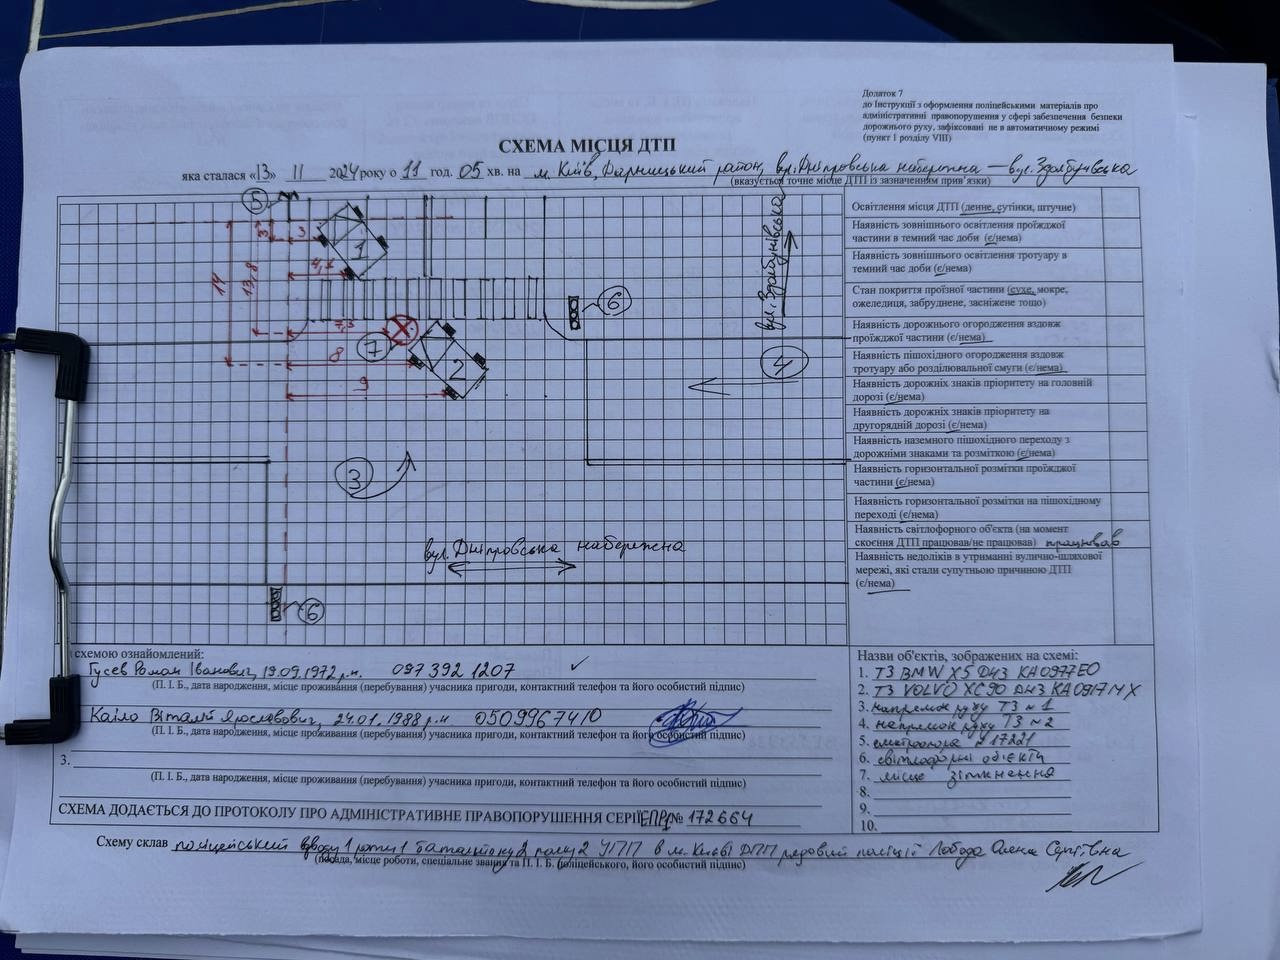 Додаток 7
до Інструкції з оформлення поліцейськими матеріалів про
адміністративні правопорушення у сфері забезпечення безпеки
дорожнього руху, зафіксовані не в автоматичному режимі
(пункт 1 розділу VIII)
СХЕМА МІСЦЯ ДТП
яка сталася «13» 11 2024 року о 11 год. 05 хв. на м. Київ, Дарницький район, вул. Дніпровська набережна — вул. Здолбунівська
(вказується точне місце ДТП із зазначенням прив'язки)
5
3
3
1
4,1
14
13,8
6
7,3
7
8
2
9
вул. Здолбунівська
4
3
вул. Дніпровська набережна
6
Освітлення місця ДТП (денне, сутінки, штучне)
Наявність зовнішнього освітлення проїжджої
частини в темний час доби (є/нема)
Наявність зовнішнього освітлення тротуару в
темний час доби (є/нема)
Стан покриття проїзної частини (сухе, мокре,
ожеледиця, забруднене, засніжене тощо)
Наявність дорожнього огородження вздовж
проїжджої частини (є/нема)
Наявність пішохідного огородження вздовж
тротуару або розділювальної смуги (є/нема)
Наявність дорожніх знаків пріоритету на головній
дорозі (є/нема)
Наявність дорожніх знаків пріоритету на
другорядній дорозі (є/нема)
Наявність наземного пішохідного переходу з
дорожніми знаками та розміткою (є/нема)
Наявність горизонтальної розмітки проїжджої
частини (є/нема)
Наявність горизонтальної розмітки на пішохідному
переході (є/нема)
Наявність світлофорного об'єкта (на момент
скоєння ДТП працював/не працював) працював
Наявність недоліків в утриманні вулично-шляхової
мережі, які стали супутньою причиною ДТП
(є/нема)
схемою ознайомлений:
Гусєв Роман Іванович, 19.09.1972 р.н. 097 392 1207
(П. І. Б., дата народження, місце проживання (перебування) учасника пригоди, контактний телефон та його особистий підпис)
Віталій Ярославович, 24.01.1988 р.н 0509967410
(П. І. Б., дата народження, місце проживання (перебування) учасника пригоди, контактний телефон та його особистий підпис)
3.
(П. І. Б., дата народження, місце проживання (перебування) учасника пригоди, контактний телефон та його особистий підпис)
СХЕМА ДОДАЄТЬСЯ ДО ПРОТОКОЛУ ПРО АДМІНІСТРАТИВНЕ ПРАВОПОРУШЕННЯ СЕРІЇ ЕПР1 № 172664
Назви об'єктів, зображених на схемі:
1. ТЗ BMW X5 ДНЗ КА0977ЕО
2. ТЗ VOLVO XC90 ДНЗ КА0917МХ
3. напрямок руху ТЗ №1
4. напрямок руху ТЗ №2
5. електроопора №17221
6. світлофорні об'єкти
7. місце зіткнення
8.
9.
10.
Схему склав поліцейський взводу 1 роти 1 батальйону 2 полку 2 УПП в м. Києві ДПП рядовий поліції Лобода Олена Сергіївна
(посада, місце роботи, спеціальне звання та П. І. Б. поліцейського, особистий підпис)